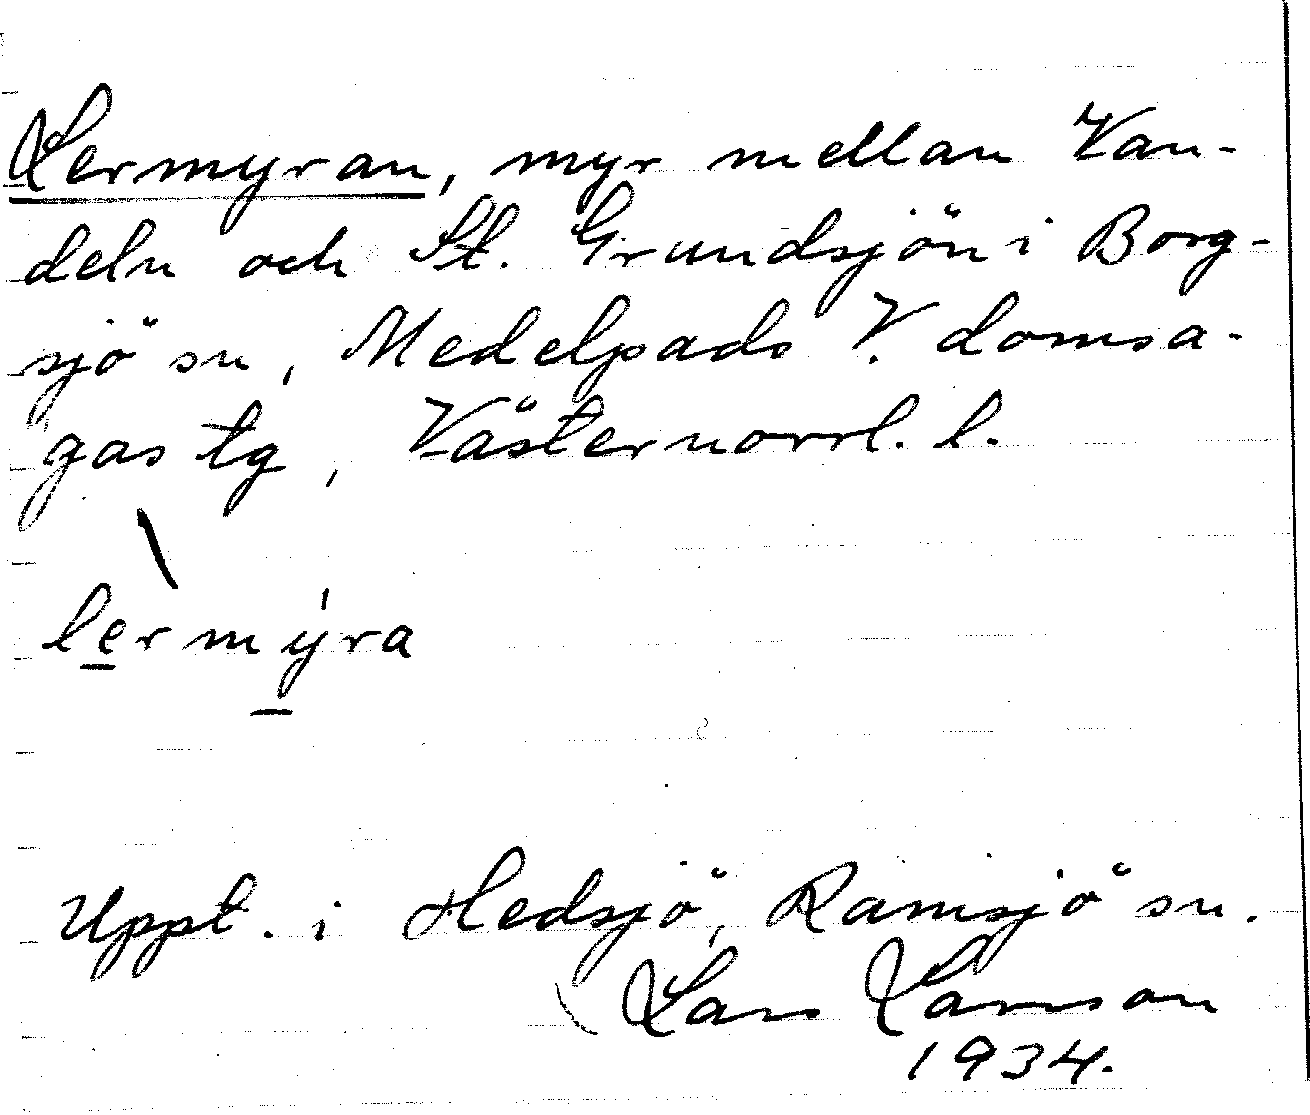 Lermyran, myr mellan Van-
deln och St. Grundsjön i Borg-
sjö sn, Medelpads V. domsa-
gas tg, Västernorrl. l.
lermýra
Uppt. i Hedsjö, Ramsjö sn.
Lars Larsson
1934.